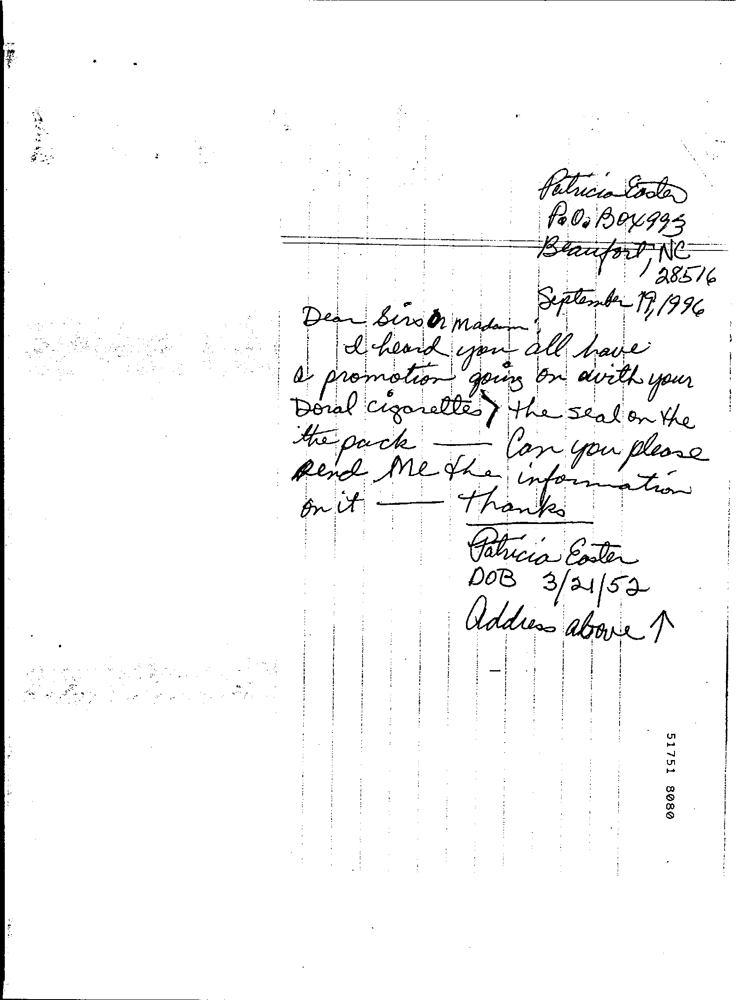 Patricia Easter
P.O. Box 993
Beaufort, NC
28516
September 19, 1996
Dear Sirs or Madam:
I heard you all have
a promotion going on with your
Doral cigarettes, the seal on the
the pack — Can you please
send Me the information
on it — Thanks
Patricia Easter
DOB 3/21/52
Address above ↑
51751 8080